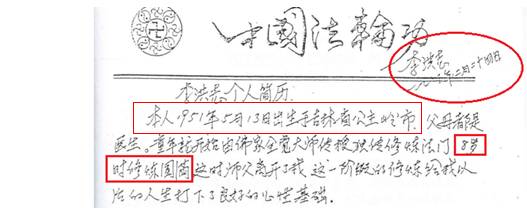 中國法輪功
李洪志
年二月二十四日
李洪志个人简历.
本人1951年5月13日出生于吉林省公主岭市. 父母都是
医生。童年就开始由佛家全觉大师传授独传修炼法门 8岁
时修炼圆满 这时师父离开了我 这一阶段的修炼给我以
后的人生打下了良好的心性基础.